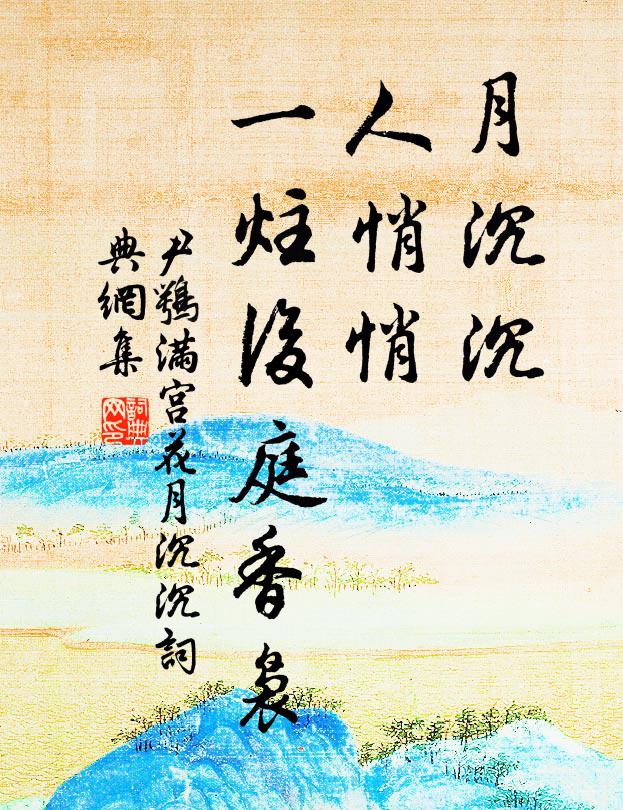 月沉沉
人悄悄
一炷後庭香裊
尹鶚滿宮花月沉沉詞
典網集
詞典網印